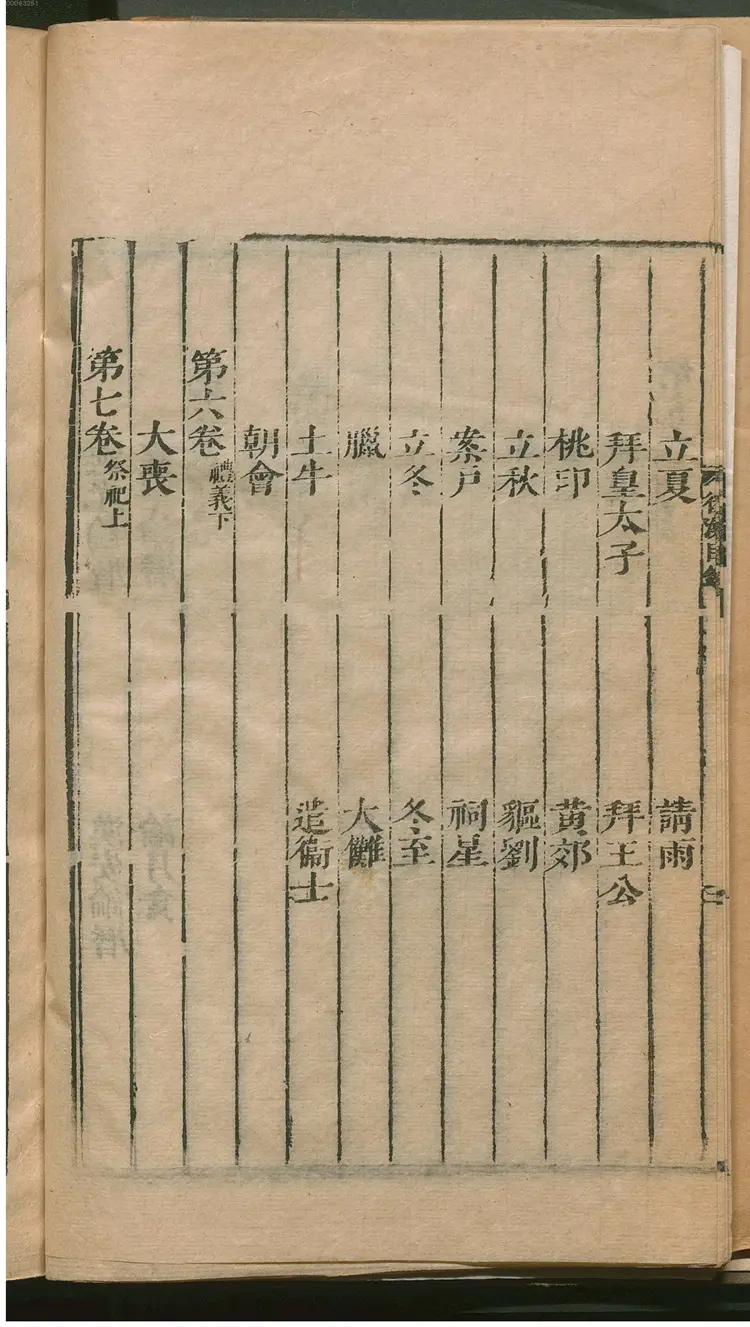 立夏 請雨
拜皇太子 拜王公
桃印 黄郊
立秋 貙劉
案戶 祠星
立冬 冬至
臘 大儺
土牛 遣衞士
朝會
第六卷 禮義下
大喪
第七卷 祭祀上